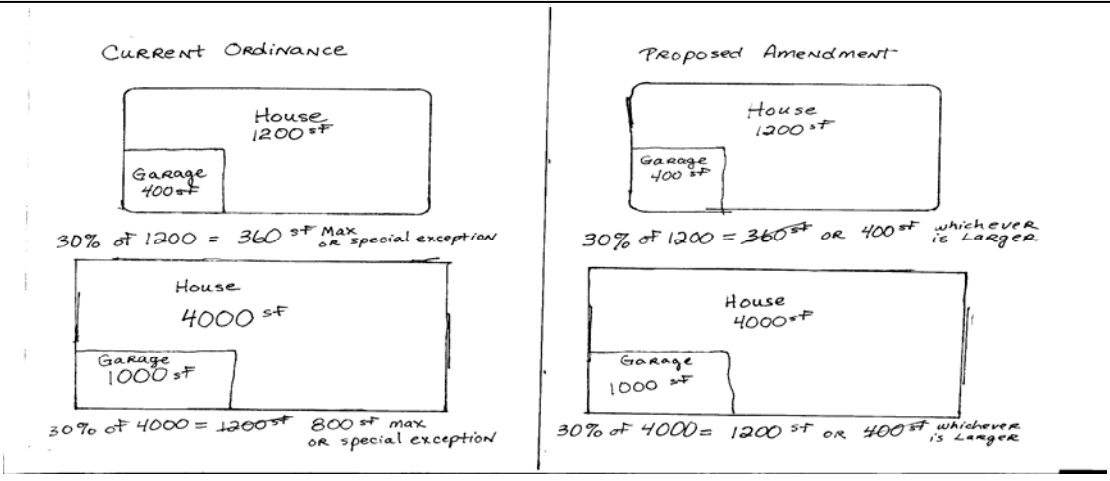 Current Ordinance
House
1200 sf
Garage
400 sf
30% of 1200 = 360 sf Max
or special exception
House
4000 sf
Garage
1000 sf
30% of 4000 = 1200 sf 800 sf max
or special exception
Proposed Amendment
House
1200 sf
Garage
400 sf
30% of 1200 = 360 sf or 400 sf whichever
is Larger
House
4000 sf
Garage
1000 sf
30% of 4000 = 1200 sf or 400 sf whichever
is Larger